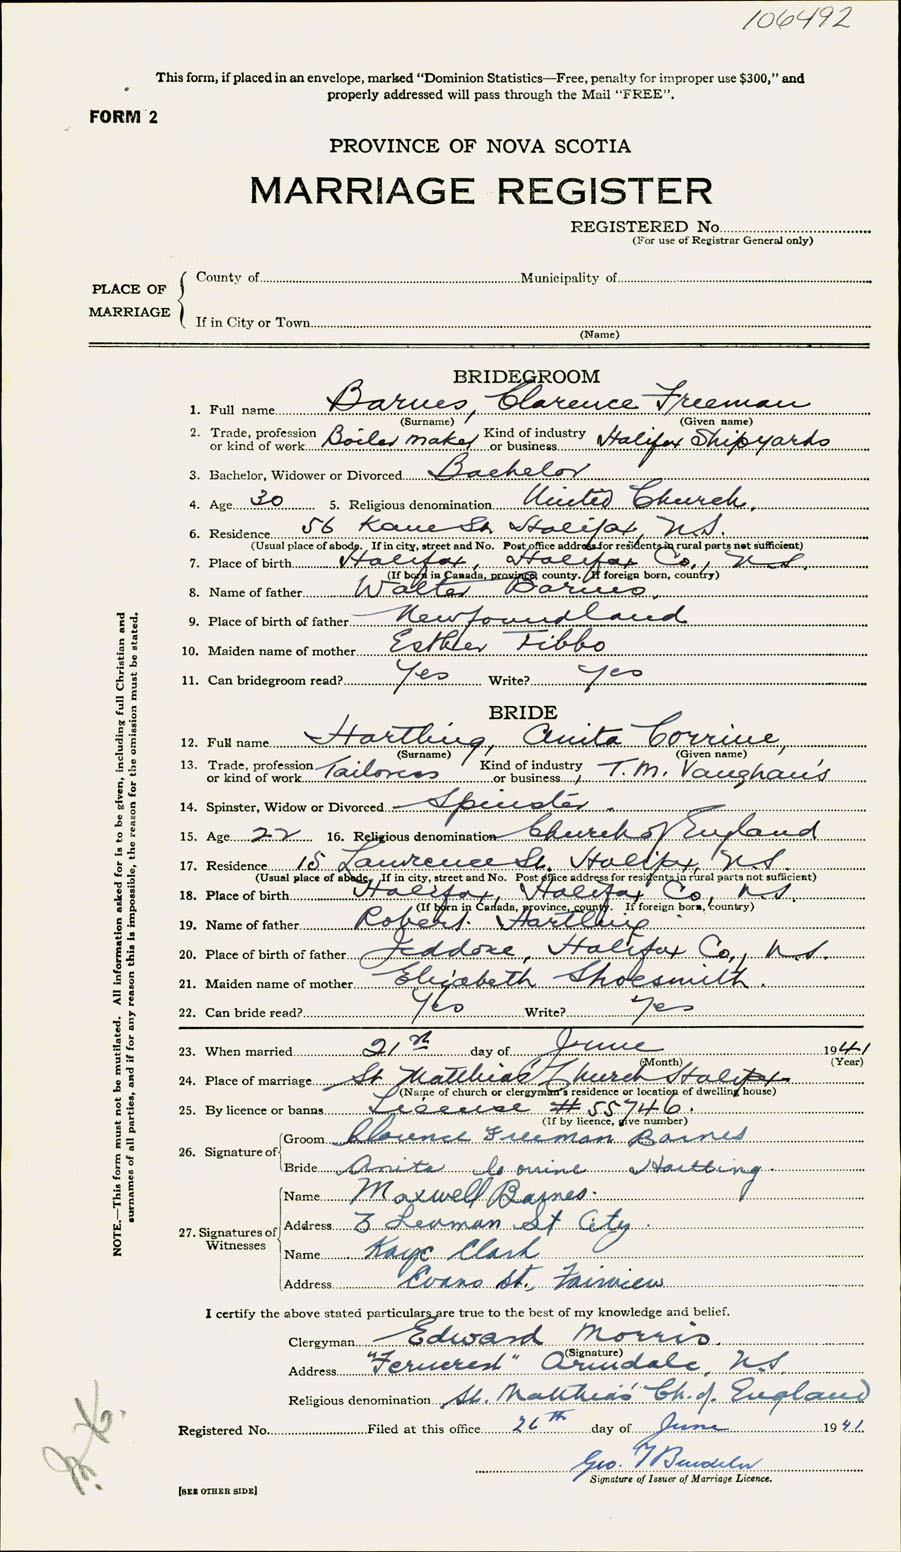 106492
This form, if placed in an envelope, marked "Dominion Statistics—Free, penalty for improper use $300," and
properly addressed will pass through the Mail "FREE".
FORM 2
PROVINCE OF NOVA SCOTIA
MARRIAGE REGISTER
REGISTERED No.
(For use of Registrar General only)
PLACE OF MARRIAGE
County of Municipality of
If in City or Town
(Name)
BRIDEGROOM
1. Full name Barnes, Clarence Freeman
(Surname) (Given name)
2. Trade, profession or kind of work Boiler maker Kind of industry or business Halifax Shipyards
3. Bachelor, Widower or Divorced Bachelor
4. Age 30 5. Religious denomination United Church,
6. Residence 56 Kane St. Halifax, N.S.
(Usual place of abode. If in city, street and No. Post office address for residents in rural parts not sufficient)
7. Place of birth Halifax, Halifax Co., N.S.
(If born in Canada, province, county. If foreign born, country)
8. Name of father Walter Barnes,
9. Place of birth of father Newfoundland
10. Maiden name of mother Esther Tibbo
11. Can bridegroom read? Yes Write? Yes
BRIDE
12. Full name Hartling, Anita Corrine,
(Surname) (Given name)
13. Trade, profession or kind of work Tailoress Kind of industry or business, T.M. Vaughan's
14. Spinster, Widow or Divorced Spinster.
15. Age 22 16. Religious denomination Church of England
17. Residence 15 Lawrence St. Halifax, N.S.
(Usual place of abode. If in city, street and No. Post office address for residents in rural parts not sufficient)
18. Place of birth Halifax, Halifax Co, N.S.
(If born in Canada, province, county. If foreign born, country)
19. Name of father Robert Hartling
20. Place of birth of father Jeddore, Halifax Co., N.S.
21. Maiden name of mother Elizabeth Shoesmith.
22. Can bride read? Yes Write? Yes
23. When married 21st day of June 1941
(Month) (Year)
24. Place of marriage St. Matthias' Church Halifax
(Name of church or clergyman's residence or location of dwelling house)
25. By licence or banns License #55746.
(If by licence, give number)
26. Signature of
Groom Clarence Freeman Barnes
Bride Anita Corrine Hartling.
27. Signatures of Witnesses
Name Maxwell Barnes.
Address 3 St City.
Name Kaye Clark
Address Evans St., Fairview
I certify the above stated particulars are true to the best of my knowledge and belief.
Clergyman Edward Morris.
(Signature)
Address "Ferncrest" Armdale, N.S.
Religious denomination St. Matthias' Ch. of England
Registered No. Filed at this office 26th day of June 1941
Geo.
Signature of Issuer of Marriage Licence.
[SEE OTHER SIDE]
NOTE.—This form must not be mutilated. All information asked for is to be given, including full Christian and
surnames of all parties, and if for any reason this is impossible, the reason for the omission must be stated.